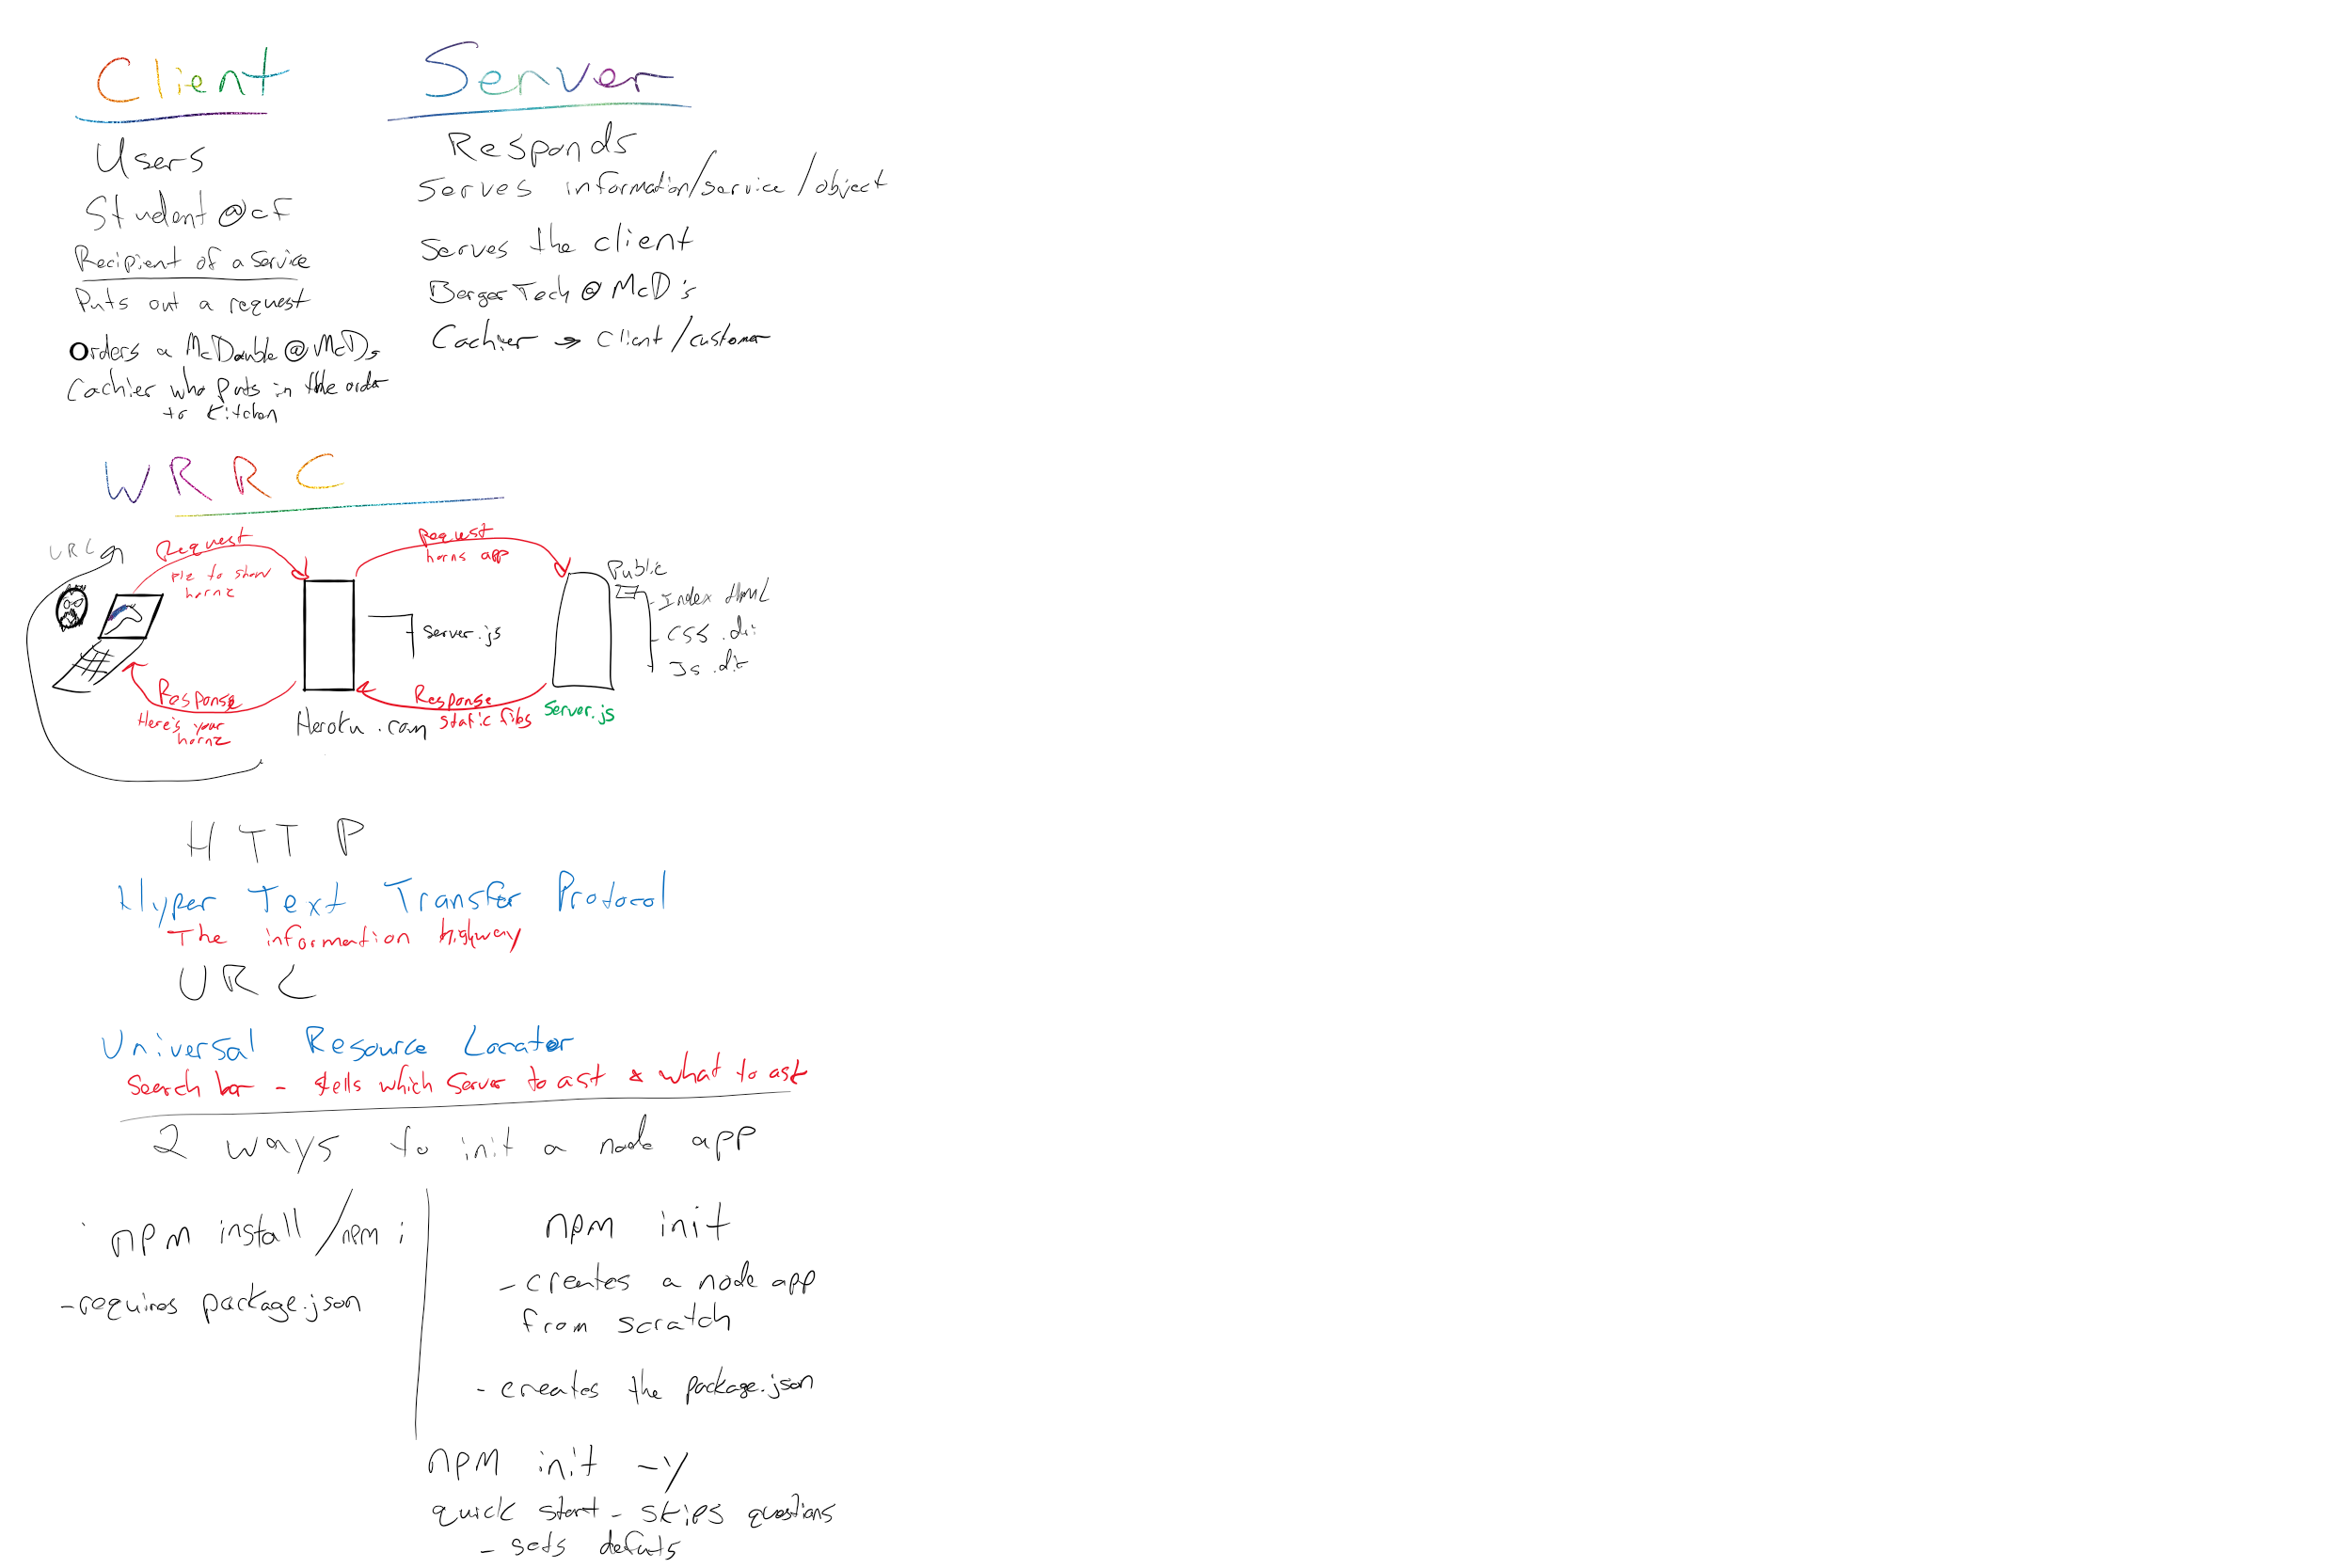 Client
Users
Student @ cf
Recipient of a service
Puts out a request
Orders a McDouble @ McDs
Cachier who puts in the order
to kitchen
Server
Responds
Serves information/service/object
Serves the client
Berger Tech @ McD's
Cachier → client/customer
WRRC
URL
Request
plz to show
hornz
Request
horns app
Public
Index Html
CSS .dir
Js .dir
server.js
Response
Here's your
hornz
Heroku.com
Response
static files
Server.js
HTTP
Hyper Text Transfer Protocol
The information highway
URL
Universal Resource Locator
Search bar - tells which server to ask & what to ask
2 ways to init a node app
npm install / npm i
-requires package.json
npm init
- creates a node app
from scratch
- creates the package.json
npm init -y
quick start - skips questions
- sets defults